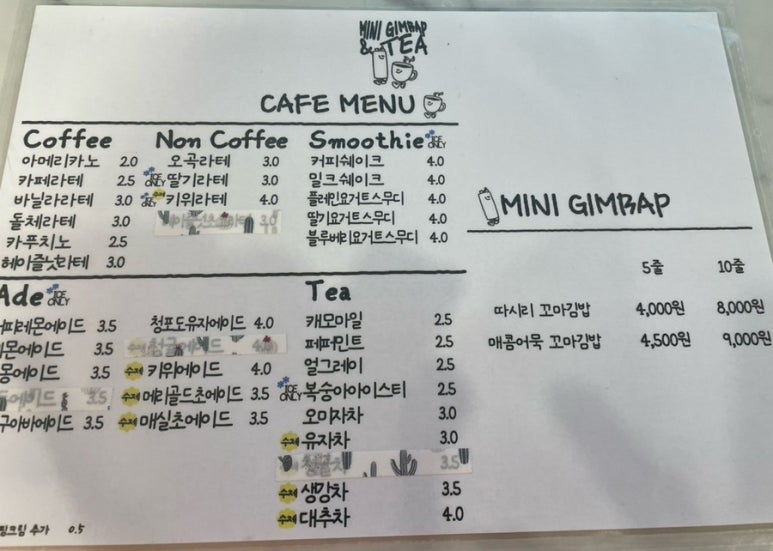 MINI GIMBAP
& TEA
CAFE MENU
Coffee
아메리카노 2.0
카페라테 2.5
바닐라라테 3.0
돌체라테 3.0
카푸치노 2.5
헤이즐넛라테 3.0
Non Coffee
오곡라테 3.0
ICE ONLY 딸기라테 3.0
ICE ONLY 수제 키위라테 4.0
3.0
Smoothie ICE ONLY
커피쉐이크 4.0
밀크쉐이크 4.0
플레인요거트스무디 4.0
딸기요거트스무디 4.0
블루베리요거트스무디 4.0
Ade ICE ONLY
레몬에이드 3.5
에이드 3.5
에이드 3.5
에이드 3.5
구아바에이드 3.5
청포도유자에이드 4.0
수제 청귤에이드 4.0
수제 키위에이드 4.0
수제 메리골드초에이드 3.5
수제 매실초에이드 3.5
Tea
캐모마일 2.5
페퍼민트 2.5
얼그레이 2.5
ICE ONLY 복숭아아이스티 2.5
오미자차 3.0
수제 유자차 3.0
청귤차 3.5
수제 생강차 3.5
수제 대추차 4.0
추가 0.5
MINI GIMBAP
5줄 10줄
따시리 꼬마김밥 4,000원 8,000원
매콤어묵 꼬마김밥 4,500원 9,000원